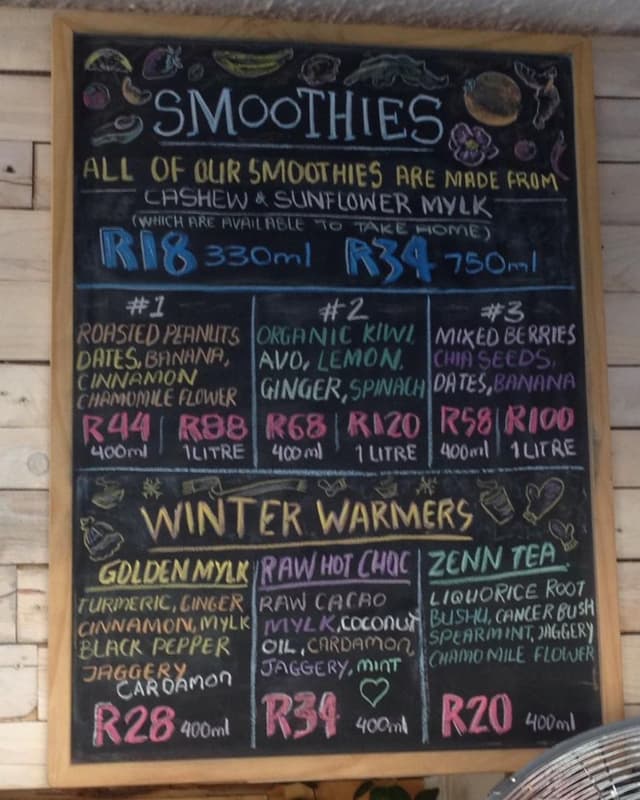 SMOOTHIES
ALL OF OUR SMOOTHIES ARE MADE FROM
CASHEW & SUNFLOWER MYLK
(WHICH ARE AVAILABLE TO TAKE HOME)
R18 330ml R34 750ml
#1
ROASTED PEANUTS
DATES, BANANA,
CINNAMON
CHAMOMILE FLOWER
R44 R88
400ml 1 LITRE
#2
ORGANIC KIWI
AVO, LEMON,
GINGER, SPINACH
R68 R120
400ml 1 LITRE
#3
MIXED BERRIES
CHIA SEEDS,
DATES, BANANA
R58 R100
400ml 1 LITRE
WINTER WARMERS
GOLDEN MYLK
TURMERIC, GINGER
CINNAMON, MYLK
BLACK PEPPER
JAGGERY
CARDAMON
R28 400ml
RAW HOT CHOC
RAW CACAO
MYLK, COCONUT
OIL, CARDAMON,
JAGGERY, MINT
R34 400ml
ZENN TEA
LIQUORICE ROOT
BUSHU, CANCER BUSH
SPEARMINT, JAGGERY
CHAMOMILE FLOWER
R20 400ml